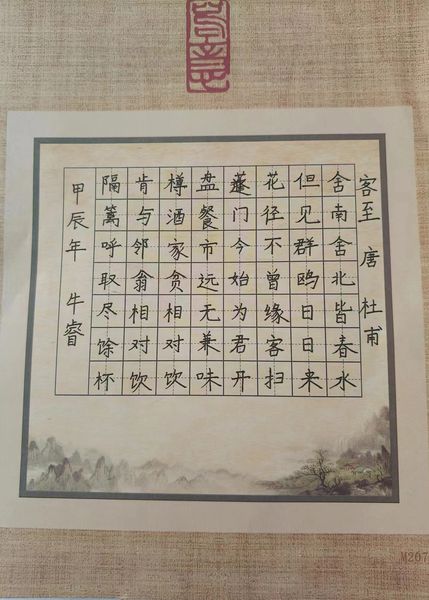 客至 唐 杜甫
舍南舍北皆春水
但见群鸥日日来
花径不曾缘客扫
蓬门今始为君开
盘餐市远无兼味
樽酒家贫相对饮
肯与邻翁相对饮
隔篱呼取尽馀杯
甲辰年 牛睿
M207